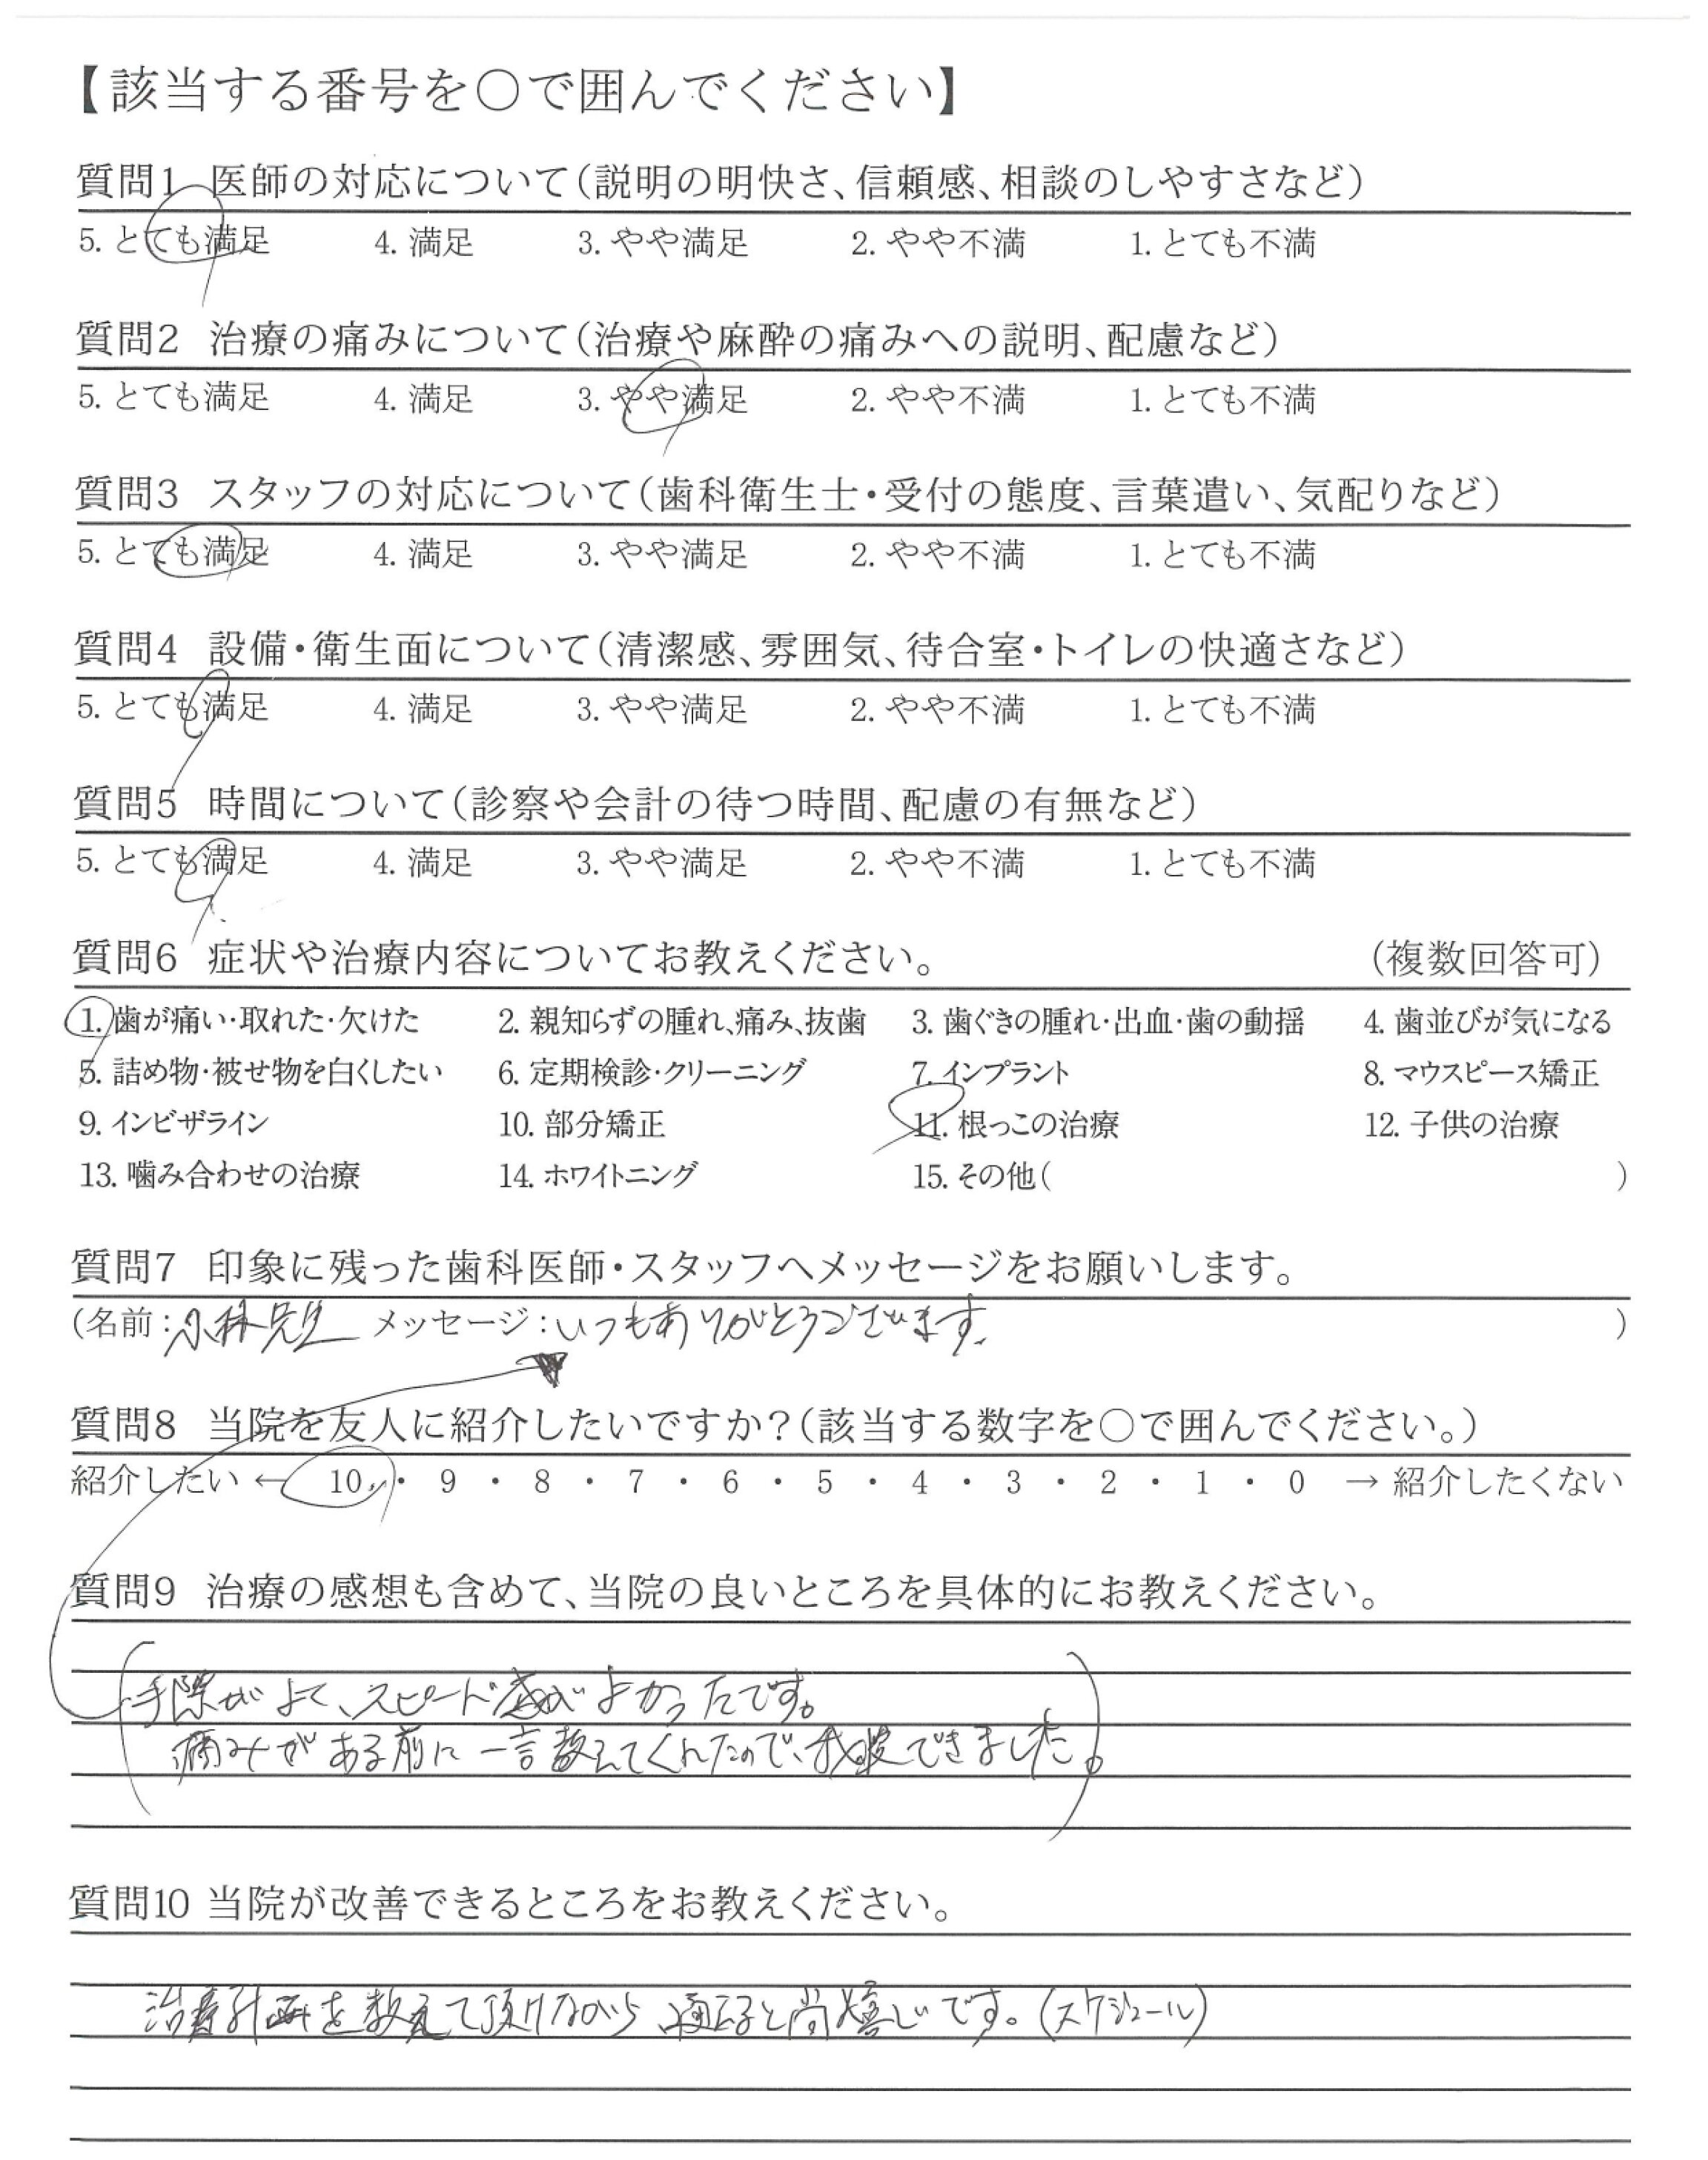 【該当する番号を○で囲んでください】
質問1 医師の対応について(説明の明快さ、信頼感、相談のしやすさなど)
5. とても満足 4. 満足 3. やや満足 2. やや不満 1. とても不満
質問2 治療の痛みについて(治療や麻酔の痛みへの説明、配慮など)
5. とても満足 4. 満足 3. やや満足 2. やや不満 1. とても不満
質問3 スタッフの対応について(歯科衛生士・受付の態度、言葉遣い、気配りなど)
5. とても満足 4. 満足 3. やや満足 2. やや不満 1. とても不満
質問4 設備・衛生面について(清潔感、雰囲気、待合室・トイレの快適さなど)
5. とても満足 4. 満足 3. やや満足 2. やや不満 1. とても不満
質問5 時間について(診察や会計の待つ時間、配慮の有無など)
5. とても満足 4. 満足 3. やや満足 2. やや不満 1. とても不満
質問6 症状や治療内容についてお教えください。 (複数回答可)
1. 歯が痛い・取れた・欠けた 2. 親知らずの腫れ、痛み、抜歯 3. 歯ぐきの腫れ・出血・歯の動揺 4. 歯並びが気になる
5. 詰め物・被せ物を白くしたい 6. 定期検診・クリーニング 7. インプラント 8. マウスピース矯正
9. インビザライン 10. 部分矯正 11. 根っこの治療 12. 子供の治療
13. 噛み合わせの治療 14. ホワイトニング 15. その他( )
質問7 印象に残った歯科医師・スタッフへメッセージをお願いします。
(名前:小林先生 メッセージ:いつもありがとうございます。 )
質問8 当院を友人に紹介したいですか?(該当する数字を○で囲んでください。)
紹介したい ← 10 ・ 9 ・ 8 ・ 7 ・ 6 ・ 5 ・ 4 ・ 3 ・ 2 ・ 1 ・ 0 → 紹介したくない
質問9 治療の感想も含めて、当院の良いところを具体的にお教えください。
(手際がよく、スピード感がよかったです。
痛みがある前に一言教えてくれたので、我慢できました。)
質問10 当院が改善できるところをお教えください。
治療計画を教えて頂けながら、通えると尚嬉しいです。(スケジュール)